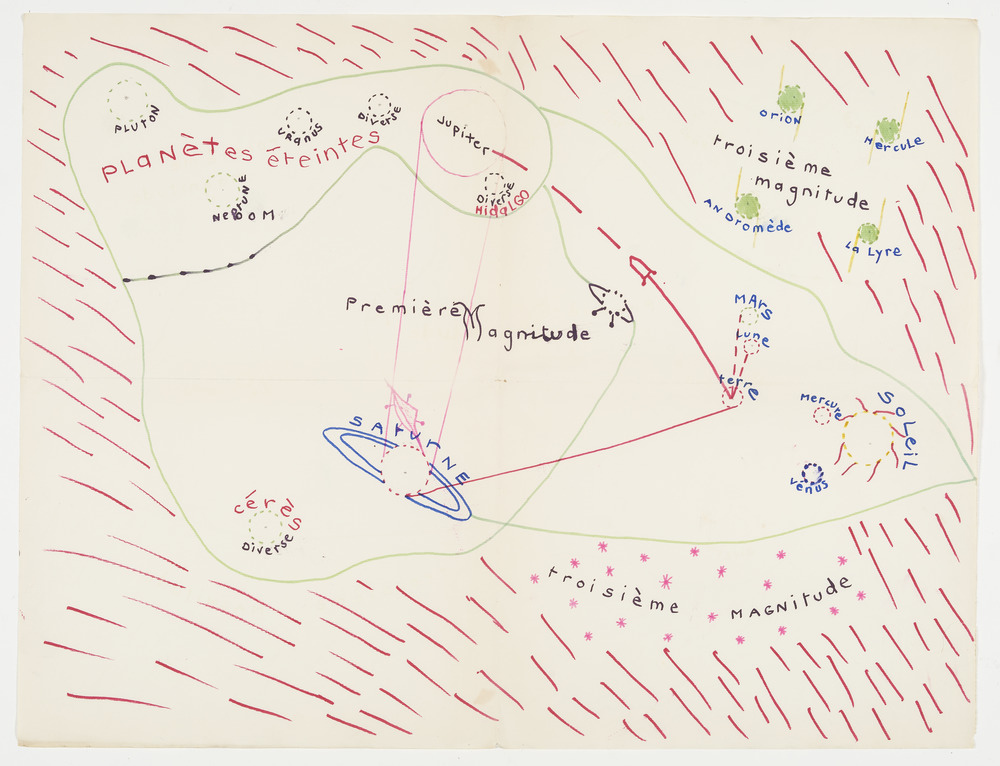 PLUTON
URANUS
Diverse
Jupiter
PLANÈTES éteintes
NEPTUNE
DOM
Diverse
HidaLGO
ORION
MERCULE
troisième
magnitude
ANDROMÈDE
La Lyre
Première Magnitude
MARS
Lune
terre
MERCURE
SOLEIL
Vénus
SATURNE
céRèS
Diverse
troisième MAGNitude